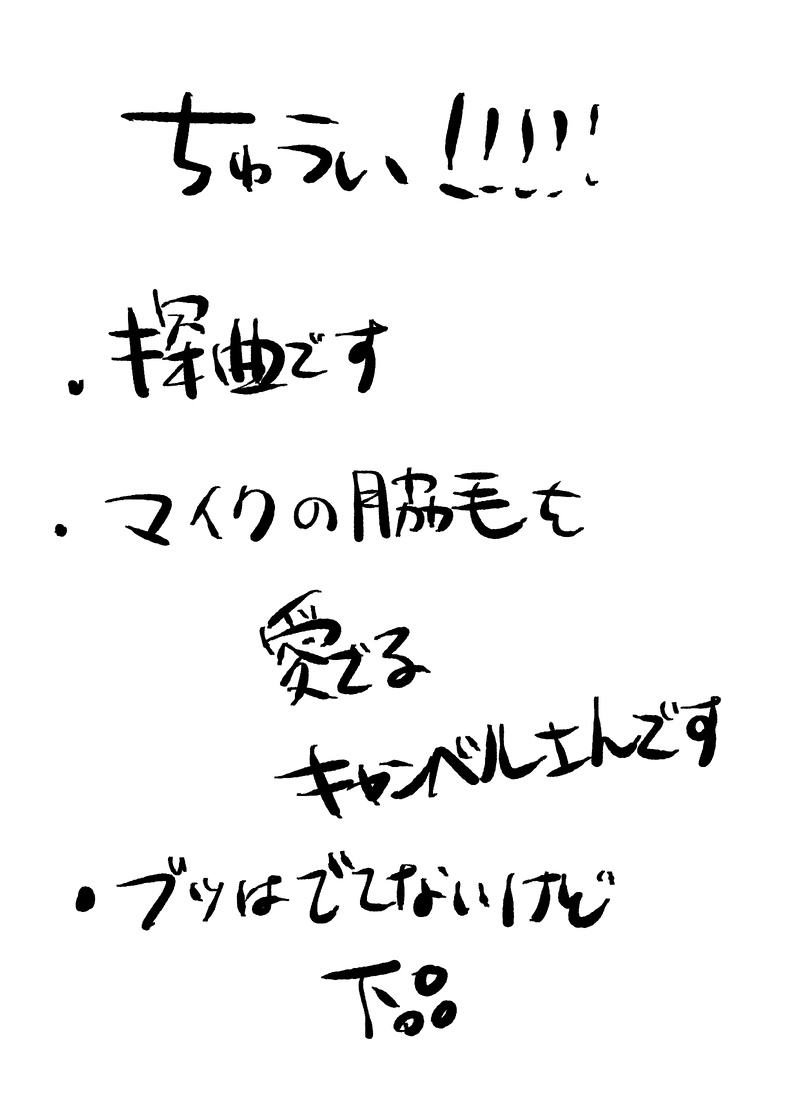 ちゅうい!!!!!
・探曲です
・マイクの脇毛を
愛でる
キャンベルさんです
・ブツはでてないけど
下品